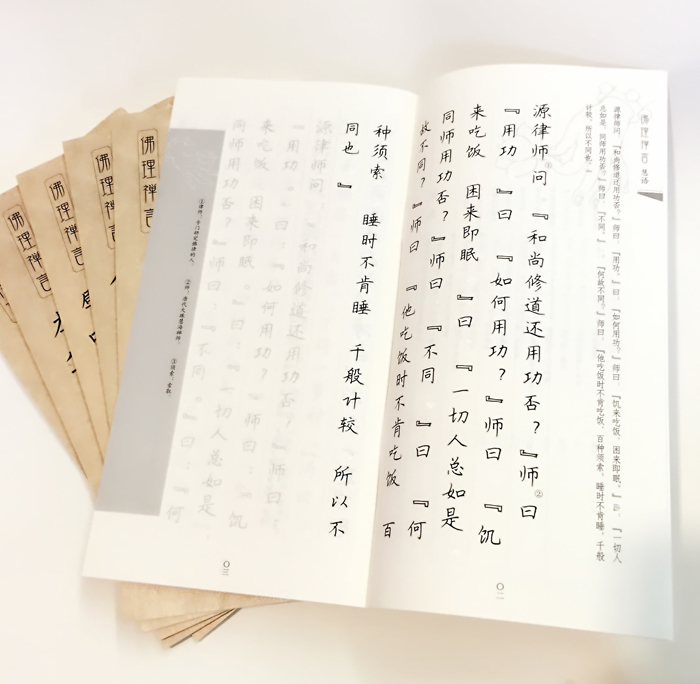 佛理禅言 慧语
源律师问:『和尚修道还用功否。』师曰:『用功。』曰:『如何用功。』师曰:『饥来吃饭,困来即眠。』曰:『一切人
总如是,同师用功否。』师曰:『不同。』曰:『何故不同。』师曰:『他吃饭时不肯吃饭,百种须索,睡时不肯睡,千般
计较,所以不同也。』
源律师①问 『和尚修道还用功否?』师②曰
『用功 』曰 『如何用功?』师曰 『饥
来吃饭 困来即眠 』曰 『一切人总如是
同师用功否?』师曰 『不同 』曰 『何
故不同?』师曰 『他吃饭时不肯吃饭 百
〇二
种须索 睡时不肯睡 千般计较 所以不
同也 』
①律师,专门研究佛律的人。 ②师,唐代大珠慧海禅师。 ③须索,索取。
〇三
佛理禅言
佛理禅言
佛理禅言
佛理禅言